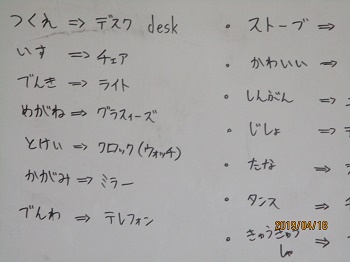 つくえ ⇒ デスク desk
いす ⇒ チェア
でんき ⇒ ライト
めがね ⇒ グラスィーズ
とけい ⇒ クロック(ウォッチ)
かがみ ⇒ ミラー
でんわ ⇒ テレフォン
・ストーブ ⇒
・かわいい ⇒
・しんぶん ⇒
・じしょ ⇒
・たな ⇒
・タンス ⇒
・きゅうきゅう ⇒
しゃ
2018/04/16